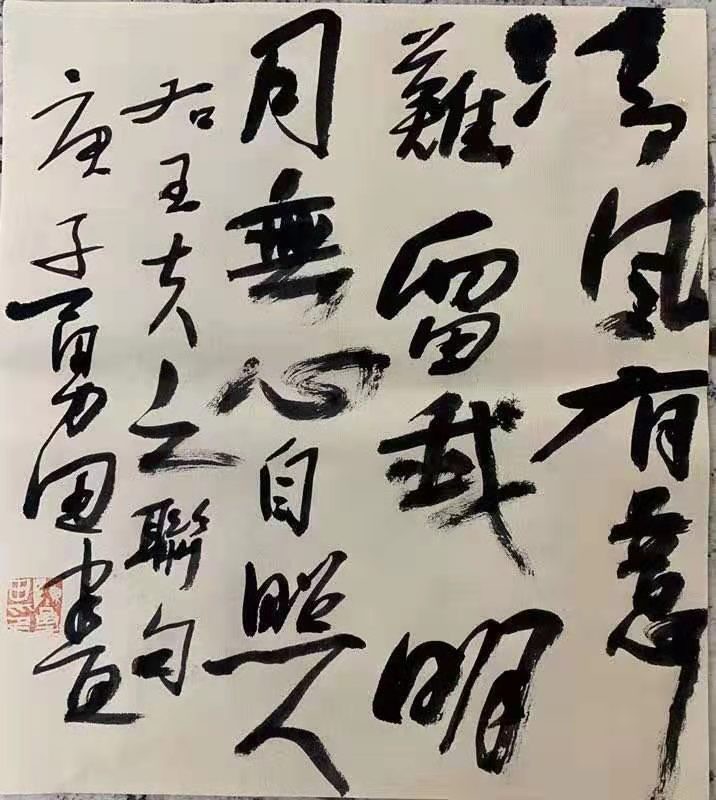 清风有意
難留我明
月無心自照人
右王夫之聯句
庚子百勇田書